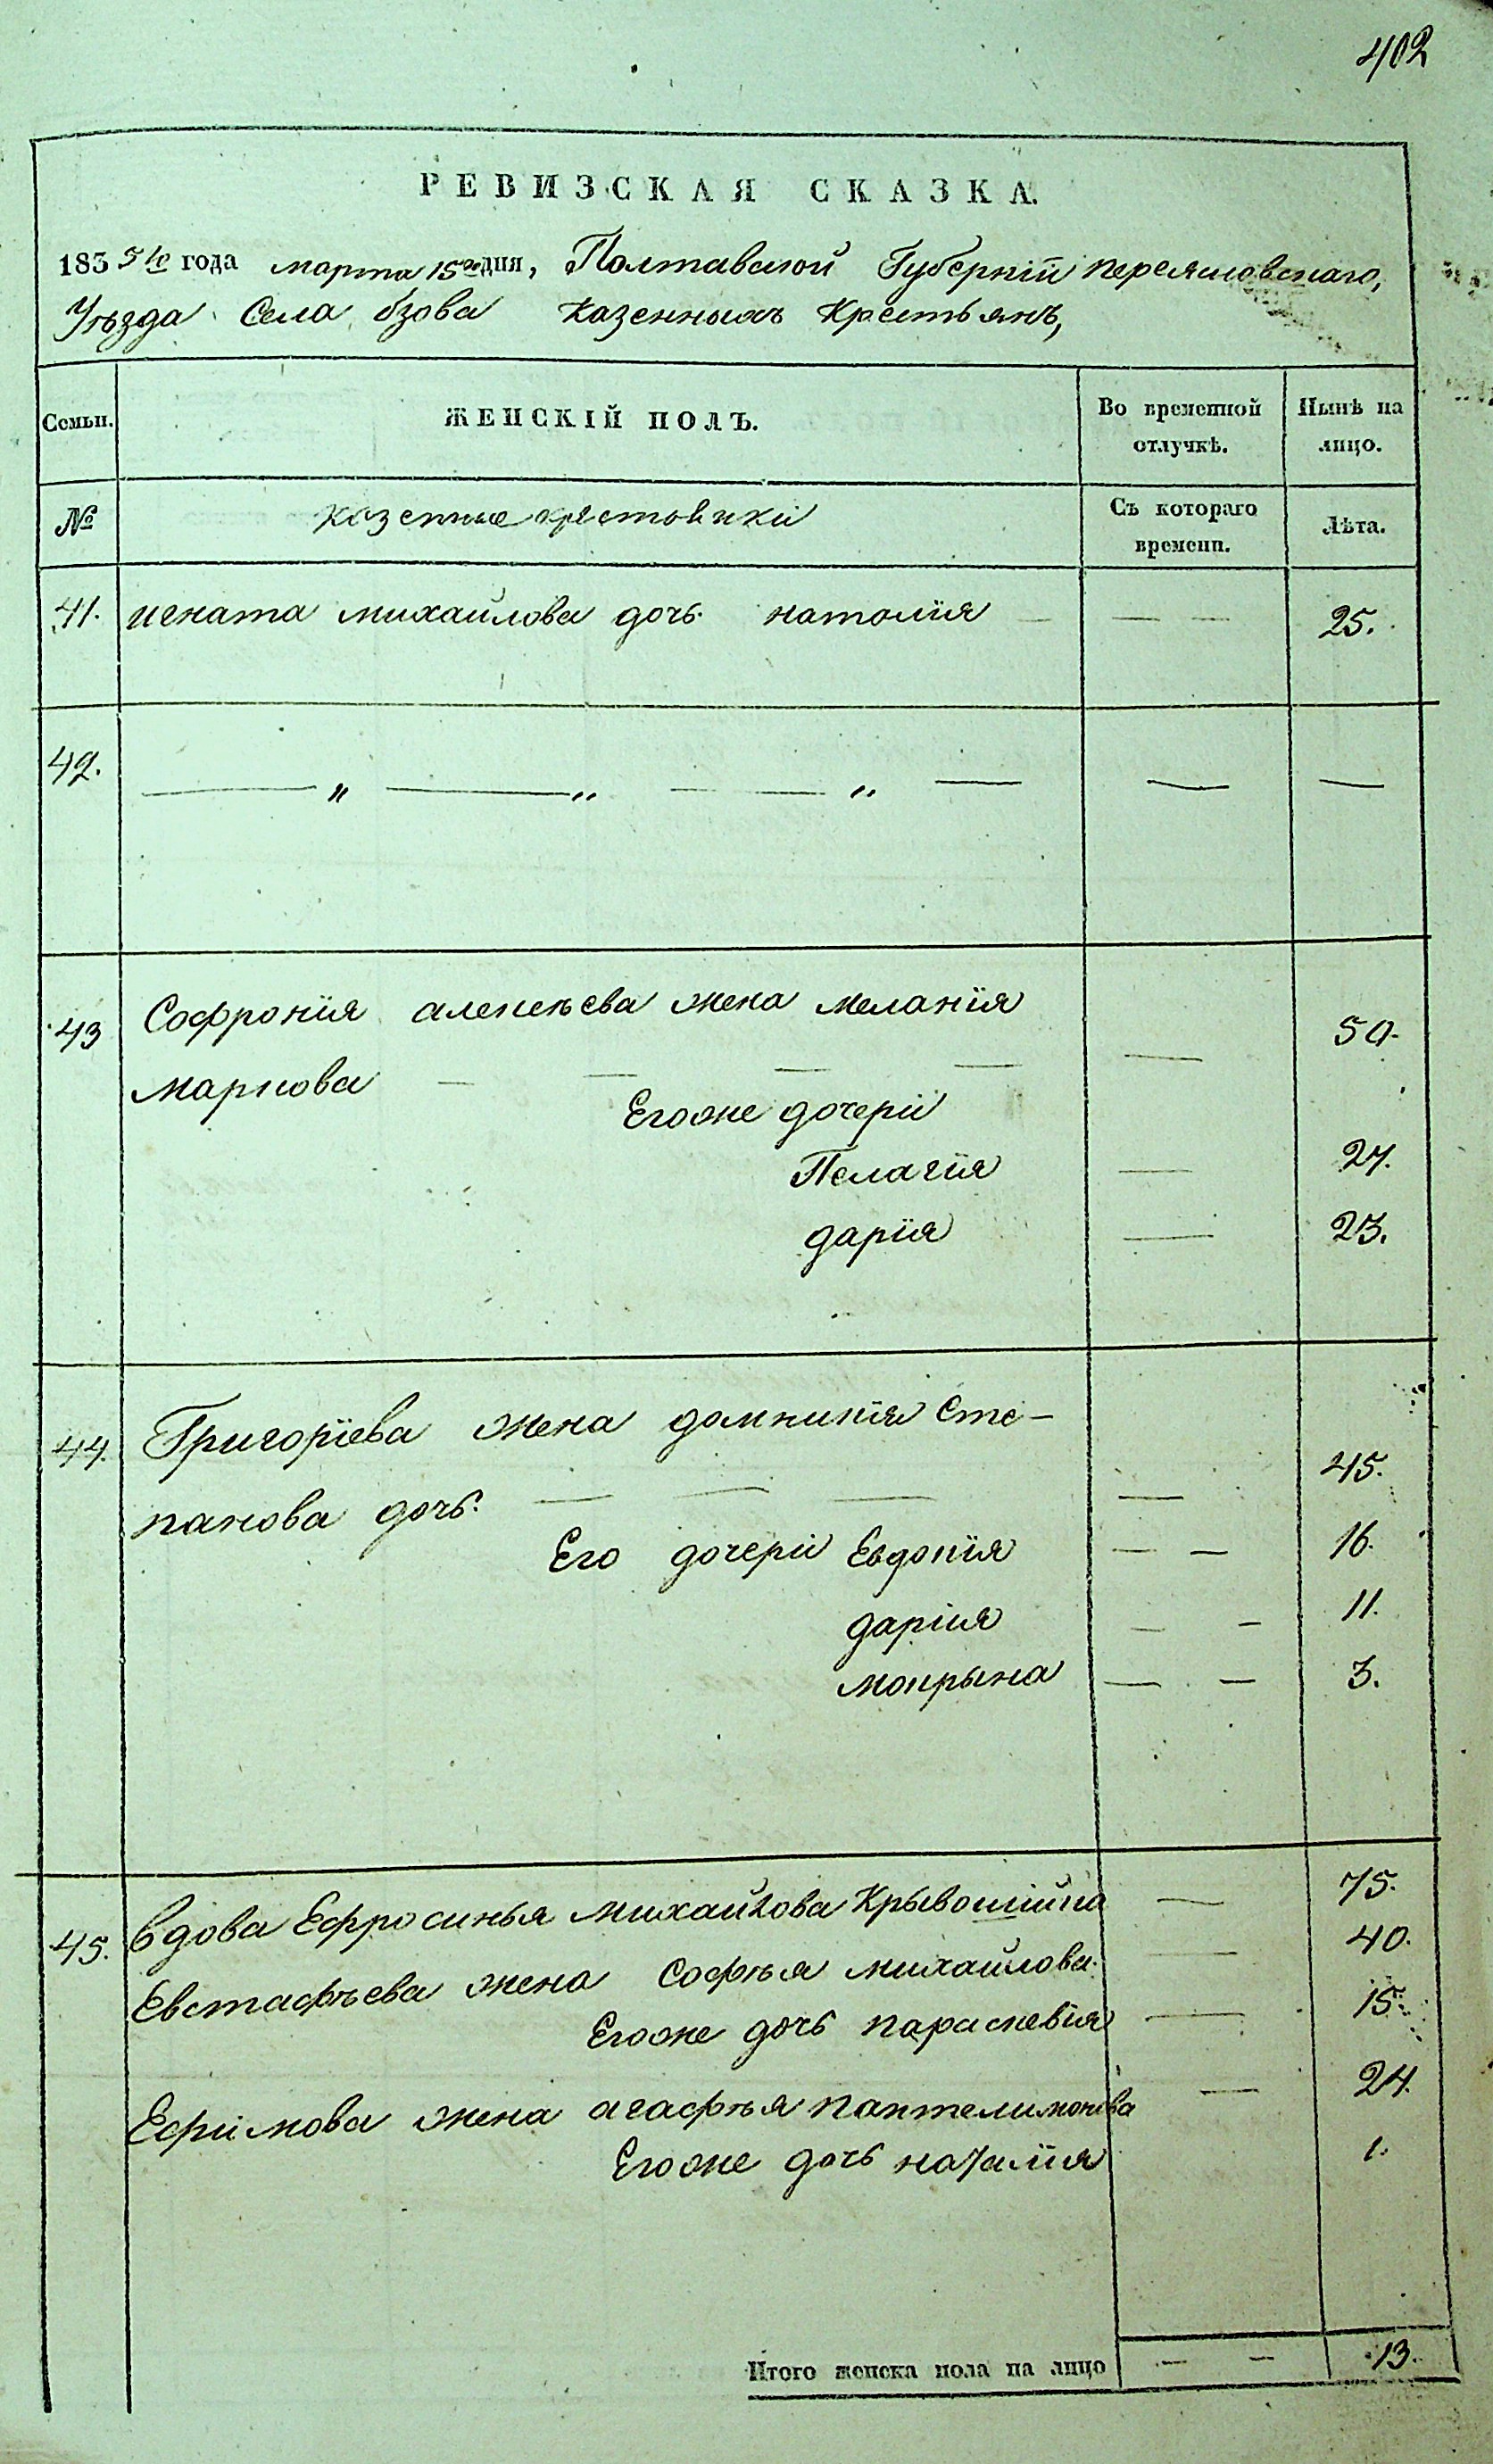 402
РЕВИЗСКАЯ СКАЗКА.
1835го года марта 15го дня, Полтавской Губерніи переясловскаго,
Уѣзда Села бзова Казенныхъ Крестьянъ,
Семьи. ЖЕНСКІЙ ПОЛЪ. Во временной отлучкѣ. Нынѣ на лицо.
№ казенные Съ котораго времени. Лѣта.
41. игната михайлова дочь наталія — — 25.
42. — „ — „ — — „ — — —
43 Софронія алексѣева жена меланія 50.
маркова — — — — —
Егоже дочери
Пелагія — 27.
дарія — 23.
44. Григоріева жена домникія Сте-
панова дочь. — — — — 45.
Его дочери Евдокія — — 16.
дарія — — 11.
мокрына — — 3.
45. вдова Ефросинья михайлова Крывошійка — 75.
Евстафѣева жена Софѣя михайлова. — 40.
Егоже дочь параскевія — 15.
Ефимова жена агафѣя пантелимонова — 24.
Егоже дочь наталія 1.
Итого женска пола на лицо — — 13.